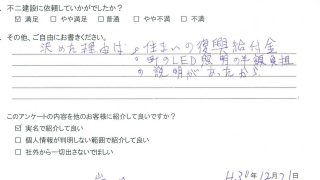 ．不二建設に依頼していかがでしたか？
☑ 満足 □ やや満足 □ 普通 □ やや不満 □ 不満
．その他、ご自由にお書きください。
決めた理由は、住まいの復興給付金
町のLED照明の半額負担
の説明があったから
このアンケートの内容を他のお客様に紹介して良いですか？
☑ 実名で紹介して良い
□ 個人情報が判明しない範囲で紹介して良い
□ 社外から一切出さないでほしい
30年12月21日